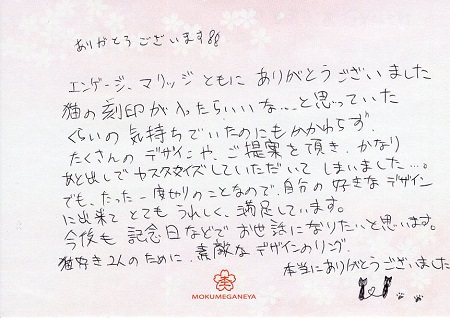 ありがとうございます!!
エンゲージ、マリッジともにありがとうございました
猫の刻印が入ったらいいな、、と思っていた
くらいの気持ちでいたのにもかかわらず、
たくさんのデザインや、ご提案を頂き、かなり
あと出しでカスタマイズしていただいてしまいました…。
でも、たった一度切りのことなので、自分の好きなデザイン
に出来てとてもうれしく、満足しています。
今後も記念日などでお世話になりたいと思います。
猫好き2人のために、素敵なデザインのリング、
本当にありがとうございました
MOKUMEGANEYA